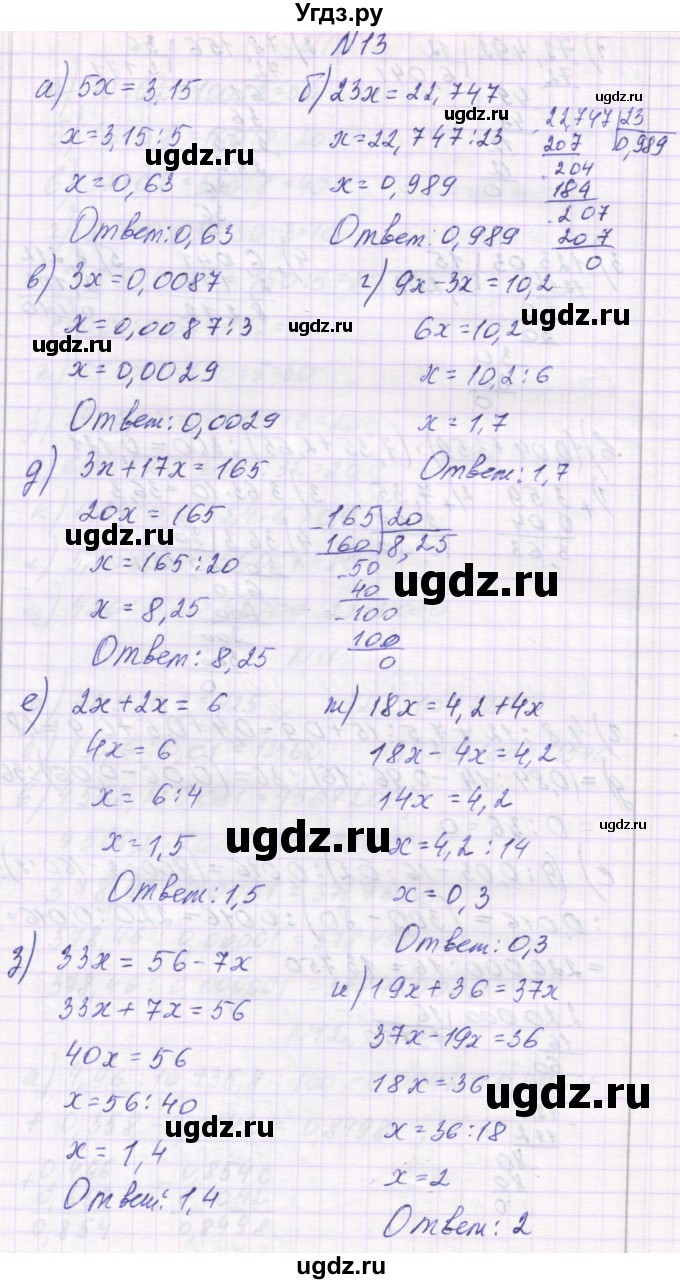 Угдз.ру
N13
а) 5x = 3,15
x = 3,15 : 5
x = 0,63
Ответ: 0,63
б) 23x = 22,747
x = 22,747 : 23
x = 0,989
Ответ: 0,989
22,747 23
207 0,989
204
184
207
207
0
в) 3x = 0,0087
x = 0,0087 : 3
x = 0,0029
Ответ: 0,0029
г) 9x - 3x = 10,2
6x = 10,2
x = 10,2 : 6
x = 1,7
Ответ: 1,7
д) 3x + 17x = 165
20x = 165
x = 165 : 20
x = 8,25
Ответ: 8,25
165 20
160 8,25
50
40
100
100
0
е) 2x + 2x = 6
4x = 6
x = 6 : 4
x = 1,5
Ответ: 1,5
ж) 18x = 4,2 + 4x
18x - 4x = 4,2
14x = 4,2
x = 4,2 : 14
x = 0,3
Ответ: 0,3
з) 33x = 56 - 7x
33x + 7x = 56
40x = 56
x = 56 : 40
x = 1,4
Ответ: 1,4
и) 19x + 36 = 37x
37x - 19x = 36
18x = 36
x = 36 : 18
x = 2
Ответ: 2
ugdz.ru
ugdz.ru
ugdz.ru
ugdz.ru
ugdz.ru
ugdz.ru
ugdz.ru
ugdz.ru
ugdz.ru
ugdz.ru
ugdz.ru
ugdz.ru
ugdz.ru